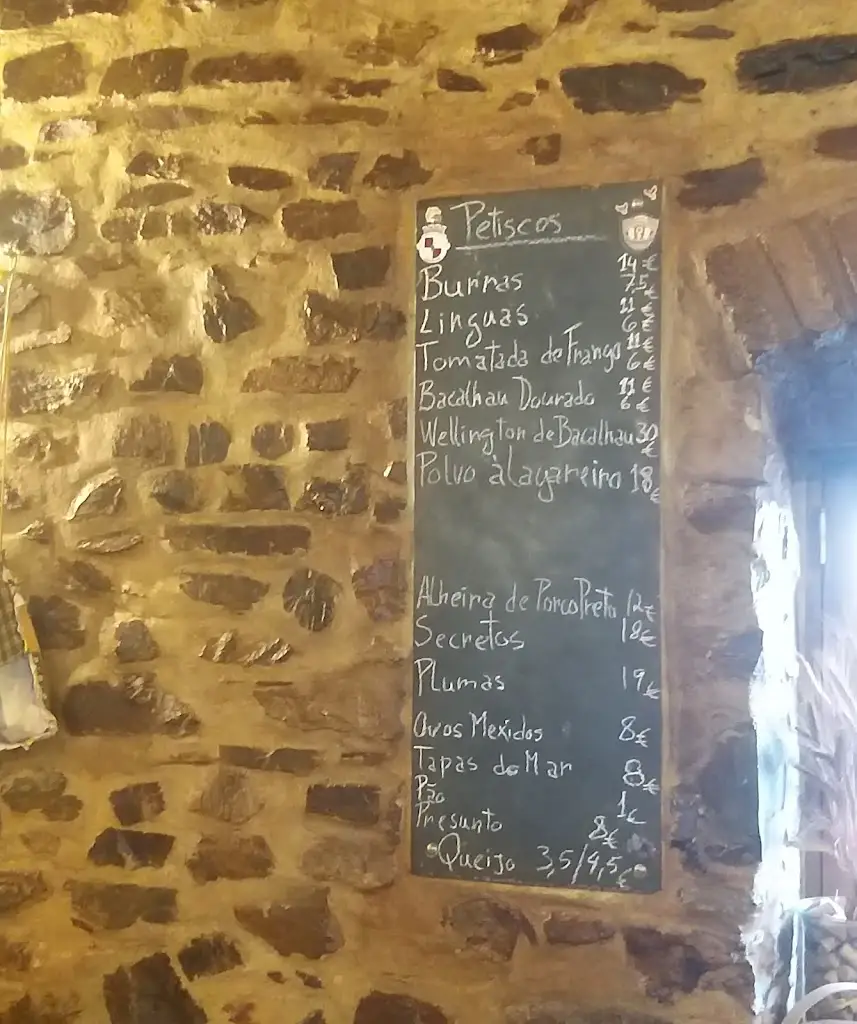 Petiscos
Burras 14€
7,5€
Linguas 11€
6€
Tomatada de Frango 11€
6€
Bacalhau Dourado 11€
6€
Wellington de Bacalhau 30€
Polvo à Lagareiro 18€
Alheira de Porco Preto 12€
Secretos 18€
Plumas 19€
Ovos Mexidos 8€
Tapas do Mar 8€
Pão 1€
Presunto 8€
Queijo 3,5/4,5€